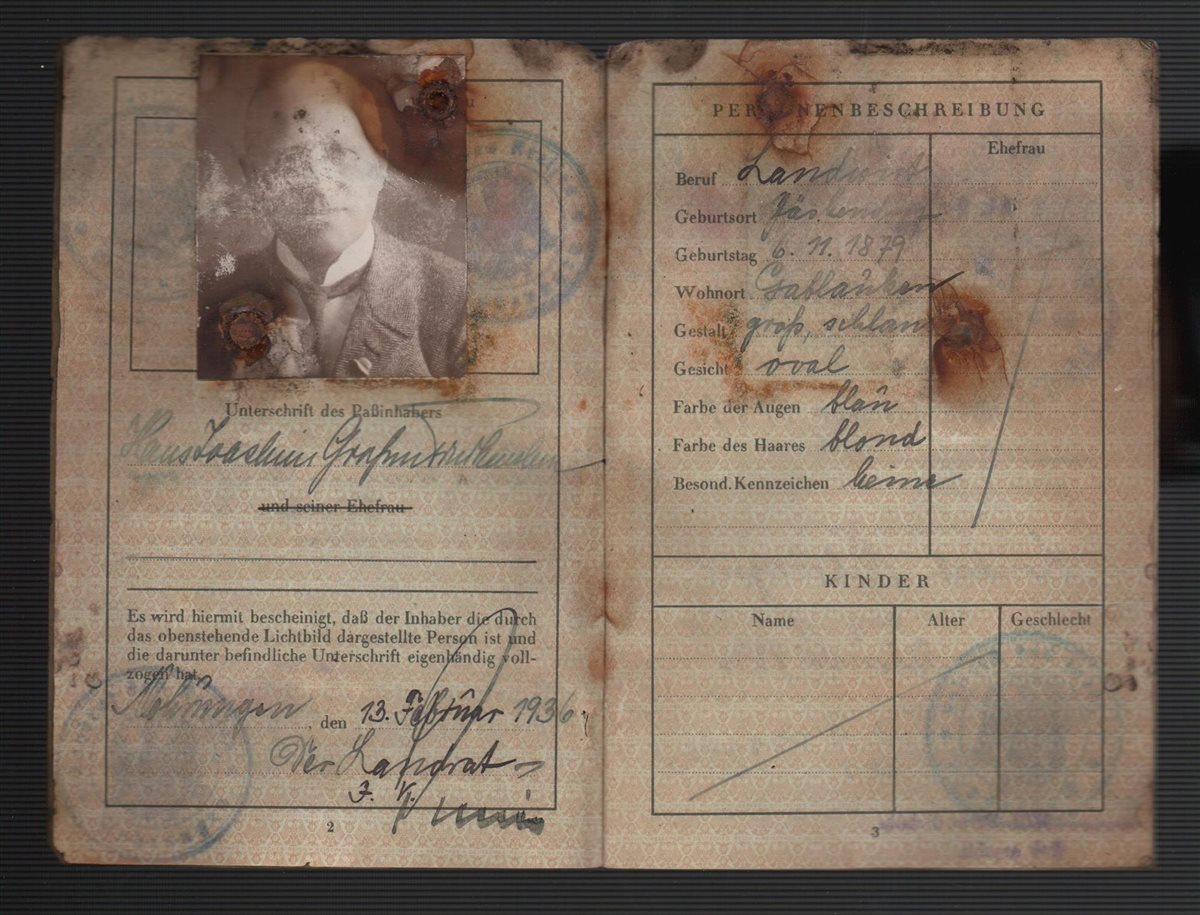 Unterschrift des Paßinhabers
Hans Joachim Graf
und seiner Ehefrau
Es wird hiermit bescheinigt, daß der Inhaber die durch
das obenstehende Lichtbild dargestellte Person ist und
die darunter befindliche Unterschrift eigenhändig voll-
zogen hat.
Mohrungen, den 13. Februar 1936
Der Landrat
J. V.
2
PERSONENBESCHREIBUNG
Ehefrau
Beruf Landwirt
Geburtsort
Geburtstag 6. 11. 1879
Wohnort Gablauken
Gestalt groß, schlank
Gesicht oval
Farbe der Augen blau
Farbe des Haares blond
Besond. Kennzeichen keine
KINDER
Name Alter Geschlecht
3